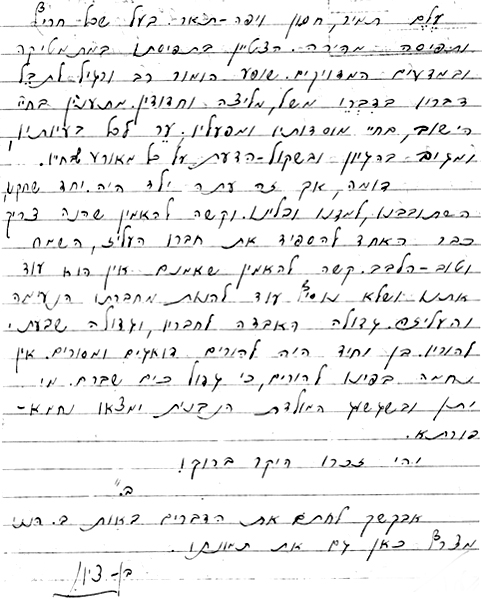 עלם תמיר, חסון ויפה-תואר. בעל שכל חריף
ותפיסה מהירה. הצטיין בתפיסתו במתמטיקה
ובמדעים המדויקים. שופע הומור רב ורגיל לתבל
דבריו בדברי משל, מליצה וחדודין. מתענין בחיי
הישוב, בחיי מוסדותיו ומפעליו. ער לכל בעיותיו,
ומגיב בהגיון ובשקול-הדעת על כל מאורע שבחיו.
דומה, אך זה עתה ילד היה. יחד שחקנו,
השתובבנו, למדנו ובלינו. וקשה להאמין שהנה צריך
כבר האחד להספיד את חברו העליז, השמח
וטוב-הלבב. קשה להאמין שאמנם אין הוא עוד
אתנו ושלא נוסיף עוד להנות מחברתו הנעימה
והעליזה. גדולה האבדה לחבריו, וגדולה שבעתי
להוריו. בן יחיד היה להורים דואגים ומסורים. אין
נחמה בפינו להורים, כי גדול כים שברם. מי
יתן ובשגשוג המולדת הנבנית ימצאו נחמה-
פורתא.
יהי זכרו היקר ברוך!
ב."
אבקשך לחתום את הדברים באות ב. הנני
מצרף כאן גם את תמונתו.
בן-ציון